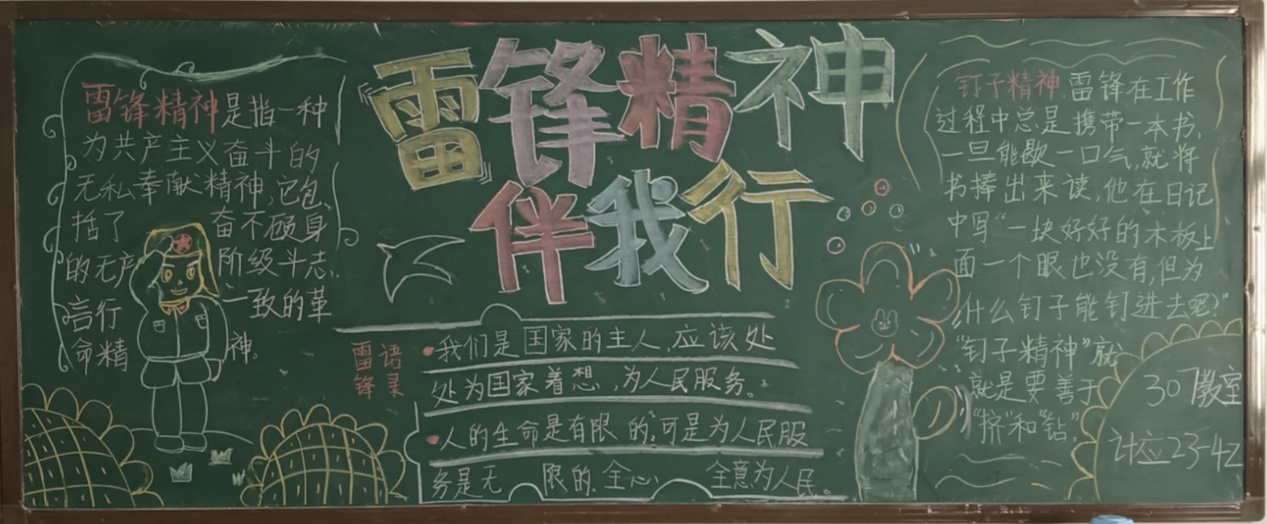 雷锋精神
伴我行
雷锋精神是指一种
为共产主义奋斗的
无私奉献精神,它包
括了 奋不顾身
的无产 阶级斗志,
言行 一致的革
命精 神。
雷锋 语录
我们是国家的主人,应该处
处为国家着想,为人民服务。
人的生命是有限的,可是为人民服
务是无 限的.全心 全意为人民。
钉子精神.雷锋在工作
过程中总是携带一本书,
一旦能歇一口气,就将
书捧出来读,他在日记
中写"一块好好的木板上
面一个眼也没有,但为
什么钉子能钉进去呢?"
"钉子精神"就
就是要善于
"挤"和"钻"
307教室
计应23-4Z